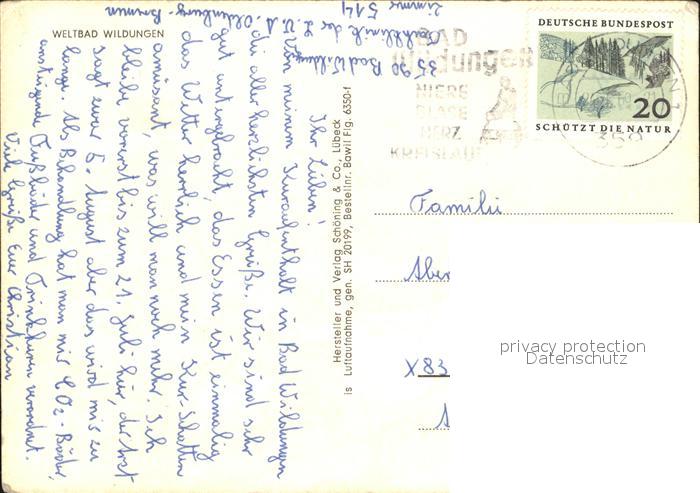 WELTBAD WILDUNGEN
Zimmer 514
Fachklinik der L.V.A. Oldenburg-Bremen
3590 Bad Wildungen
Ihr Lieben!
Von meinem Kuraufenthalt in Bad Wildungen
die allerherzlichsten Grüße. Wir sind sehr
gut untergebracht, das Essen ist einmalig
das Wetter herrlich und mein Kur-Schatten
amüsant, was will man noch mehr. Ich
bleibe vorerst bis zum 21. Juli hier, der Arzt
sagt zwar 5. August aber das wird mir zu
lange. Als Behandlung hat man mir CO2-Bäder,
ansteigend Fußbäder und Trinkkuren verordnet.
Viele Grüße Euer Christian
Hersteller und Verlag Schöning & Co., Lübeck
is Luftaufnahme, gen. SH 20199, Bestellnr. Bawil Flg. 6350-f
BAD
Wildungen
NIERE
BLASE
HERZ
KREISLAUF
DEUTSCHE BUNDESPOST
20
SCHÜTZT DIE NATUR
359
Familie
Aber
X 83
privacy protection
Datenschutz